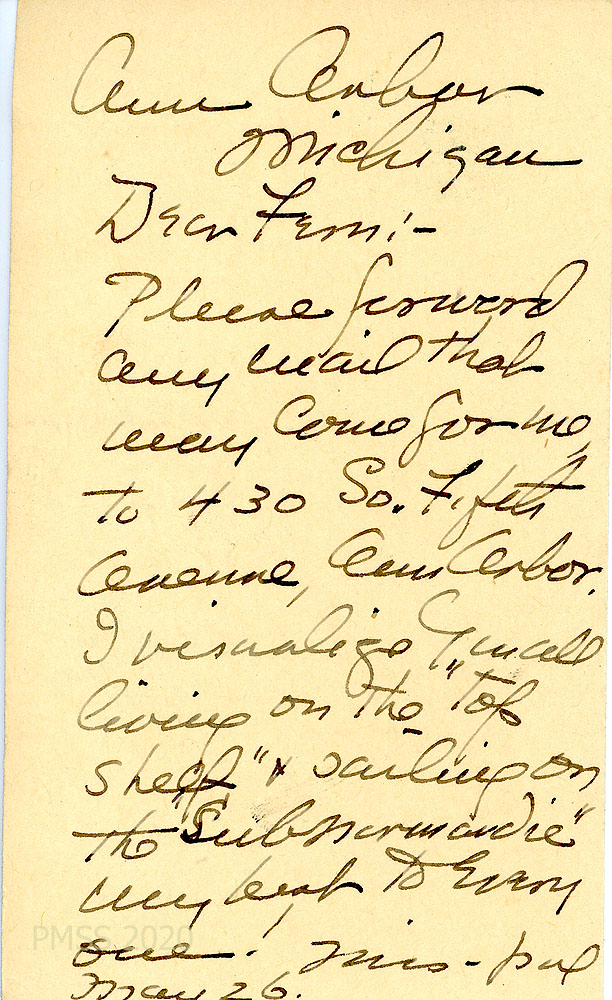 Ann Arbor
Michigan
Dear Fern:-
Please forward
any mail that
may come for me,
to 430 So. Fifth
Avenue, Ann Arbor.
I visualize
living on the "Top
Shelf" & sailing on
the "Subnormandie"
My best to Every
one!
May 26.
PMSS 2020